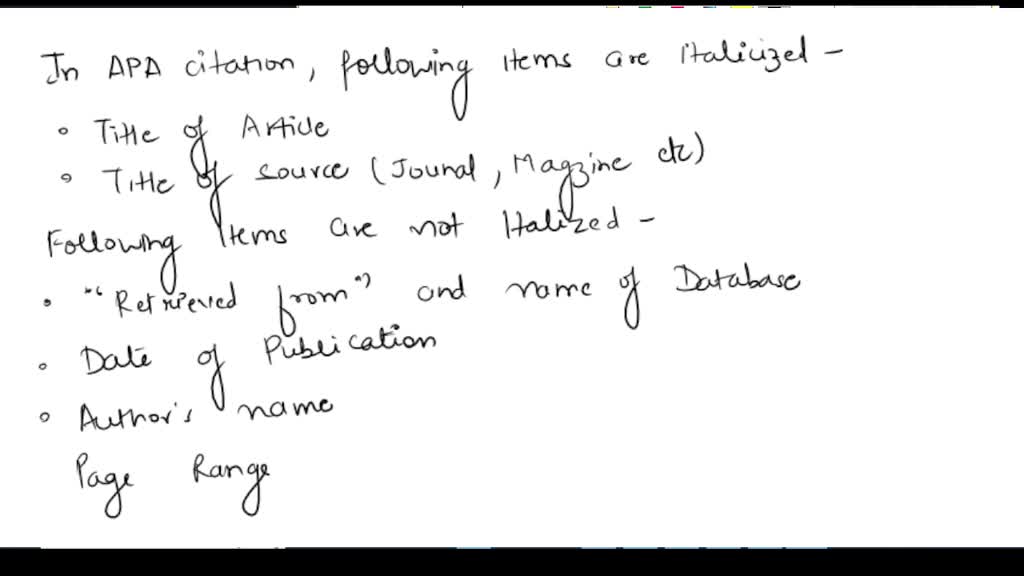 In APA citation, following items are italicized –
• Title of Article
• Title of source (Jounal, Magzine etc)
Following Items are not Italized –
• "Retrieved from" and name of Database
• Date of Publication
• Author's name
Page Range